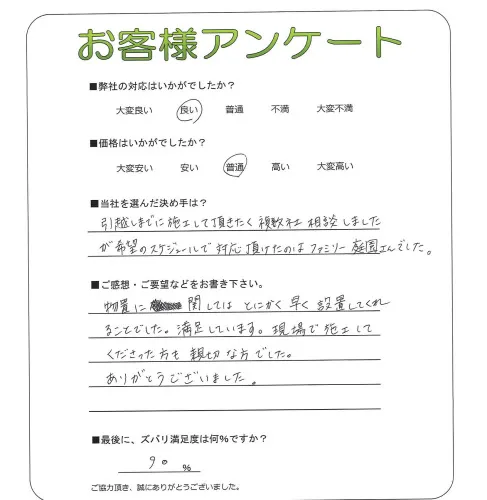 お客様アンケート
■弊社の対応はいかがでしたか？
大変良い 良い 普通 不満 大変不満
■価格はいかがでしたか？
大変安い 安い 普通 高い 大変高い
■当社を選んだ決め手は？
引越しまでに施工して頂きたく複数社相談しました
が希望のスケジュールで対応頂けたのはファミリー庭園さんでした。
■ご感想・ご要望などをお書き下さい。
物置に関してはとにかく早く設置してくれ
ることでした。満足しています。現場で施工して
くださった方も親切な方でした。
ありがとうございました。
■最後に、ズバリ満足度は何％ですか？
90 %
ご協力頂き、誠にありがとうございました。